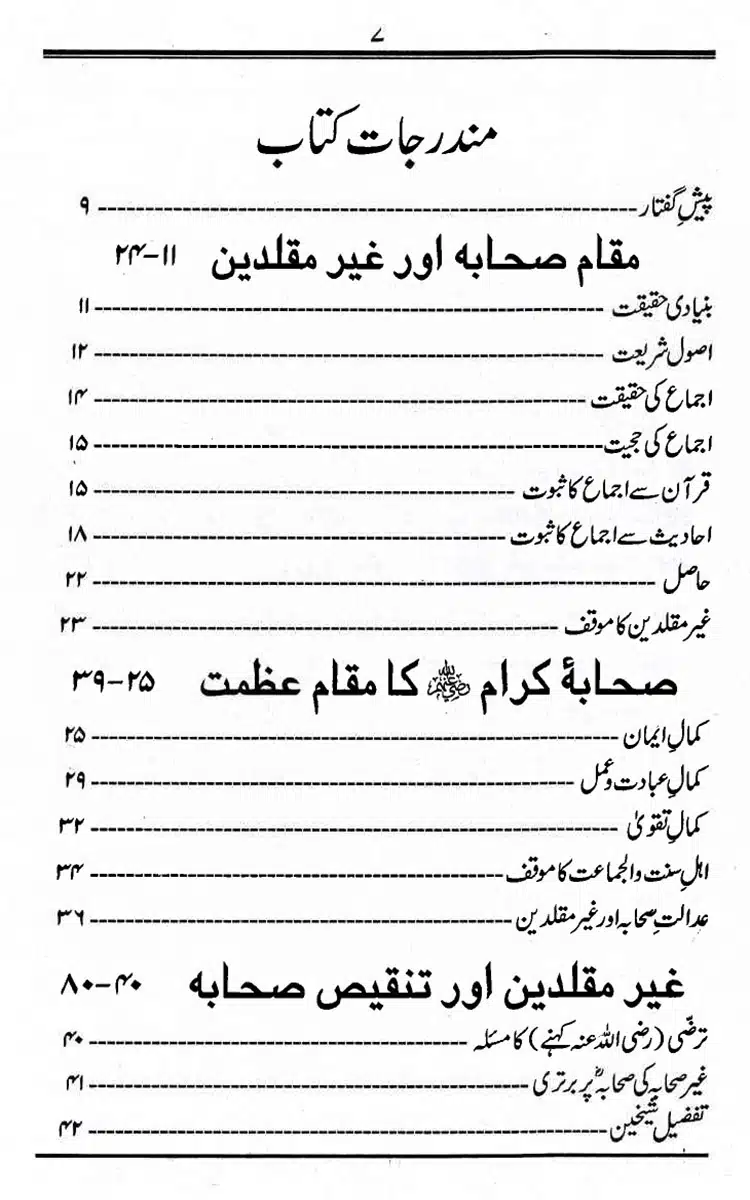 ۷
مندرجات کتاب
پیشِ گفتار ---------- ۹
مقام صحابہ اور غیر مقلدین ۱۱-۲۴
بنیادی حقیقت ---------- ۱۱
اصول شریعت ---------- ۱۲
اجماع کی حقیقت ---------- ۱۴
اجماع کی حجیت ---------- ۱۵
قرآن سے اجماع کا ثبوت ---------- ۱۵
احادیث سے اجماع کا ثبوت ---------- ۱۸
حاصل ---------- ۲۲
غیر مقلدین کا موقف ---------- ۲۳
صحابۂ کرام رضی اللہ عنہم کا مقام عظمت ۲۵-۳۹
کمالِ ایمان ---------- ۲۵
کمالِ عبادت و عمل ---------- ۲۹
کمالِ تقویٰ ---------- ۳۲
اہلِ سنت والجماعت کا موقف ---------- ۳۴
عدالتِ صحابہ اور غیر مقلدین ---------- ۳۶
غیر مقلدین اور تنقیص صحابہ ۴۰-۸۰
ترضّی (رضی اللہ عنہ کہنے) کا مسئلہ ---------- ۴۰
غیر صحابہ کی صحابہؓ پر برتری ---------- ۴۱
تفضیل شیخین ---------- ۴۲